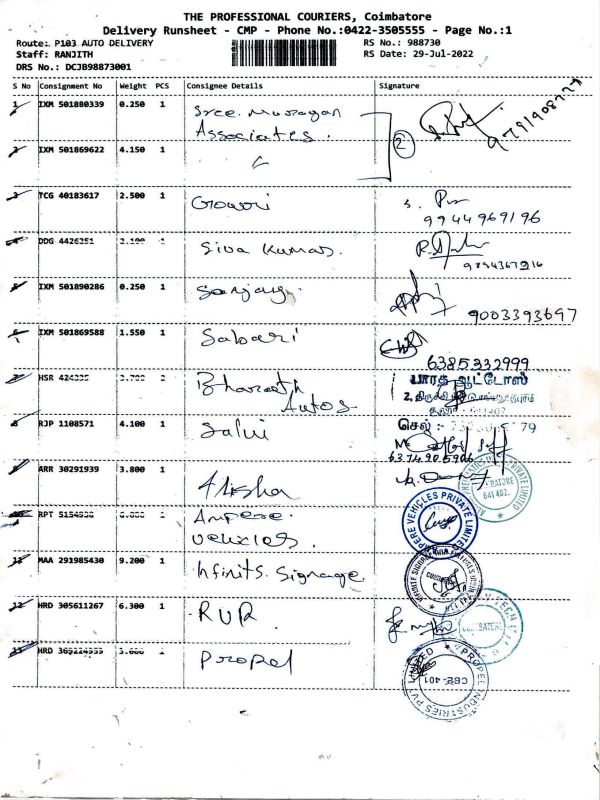 THE PROFESSIONAL COURIERS, Coimbatore
Delivery Runsheet - CMP - Phone No.:0422-3505555 - Page No.:1
Route: P103 AUTO DELIVERY
RS No.: 988730
Staff: RANJITH
RS Date: 29-Jul-2022
DRS No.: DCJB98873001
S No Consignment No Weight PCS Consignee Details Signature
1 IXM 501880339 0.250 1 Sree Murugan
Associates.
2
9791908777
2 IXM 501869622 4.150 1
3 TCG 40183617 2.500 1 Gowri
9944969196
DDG 4426351 2.100 Siva Kumar.
9894367916
IXM 501890286 0.250 1 Sanjay.
9003393697
6 IXM 501869588 1.550 1 Sabari
6385332999
HSR Bharath
Autos
பாரத் ஆட்டோஸ்
செல் :-
8 RJP 1108571 4.100 1 Salvi
6374205906
9 ARR 30291939 3.800 1 Alisha
641 402.
RPT Ampere
Vehicles.
AMPERE VEHICLES PRIVATE LIMITED
11 MAA 291985430 9.200 1 Infinits Signage
12 HRD 305611267 6.300 1 RVR
COIMBATORE
13 HRD Propel
PROPEL INDUSTRIES PVT LIMITED
CBE-401